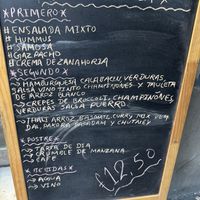 *PRIMERO*
#ENSALADA MIXTO
# HUMMUS
# SAMOSA
# GAZPACHO
# CREMA DE ZANAHORIA
*SEGUNDO*
→ HAMBURGUESA CALABACIN, VERDURAS,
SALSA VINO TINTO CHAMPIÑONES Y
DE ARROZ BLANCO
→ CREPES DE BROCCOLI, CHAMPIÑONES,
VERDURAS SALSA PUERRO.
→ THALI ARROZ BASMATI, CURRY MIX VERD,
DAL, PAKORA PAPADAM Y CHUTNEY
*POSTRE*
→ TARTA DE DIA
→ CRUMABLE DE MANZANA
→ CAFE
*BEBIDAS*
→ AGUA
→ VINO
12,50